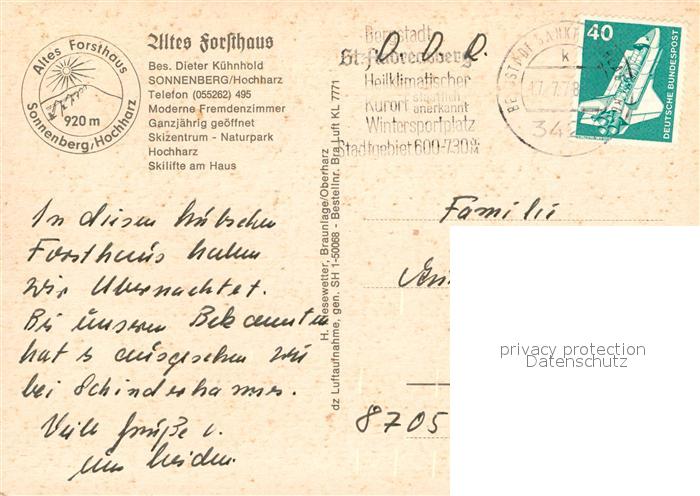 Altes Forsthaus
Sonnenberg/Hochharz
920 m
Altes Forsthaus
Bes. Dieter Kühnhold
SONNENBERG/Hochharz
Telefon (055262) 495
Moderne Fremdenzimmer
Ganzjährig geöffnet
Skizentrum - Naturpark
Hochharz
Skilifte am Haus
Bergstadt
St. Andreasberg
Heilklimatischer
Kurort staatlich
anerkannt
Wintersportplatz
Stadtgebiet 600-730 m
BERGSTADT SANKT
k
17.7.78
342
40
DEUTSCHE BUNDESPOST
dz Luftaufnahme, gen. SH 1-50068 - Bestellnr. Bra Luft KL 7771
Braunlage/Oberharz
In diesen hübschen
Forsthaus haben
wir Übernachtet.
Bei unseren Bekannten
hat s ausgesehen wie
bei Schinderhannes.
Viele Grüße v.
uns beiden.
Familie
8705
privacy protection
Datenschutz